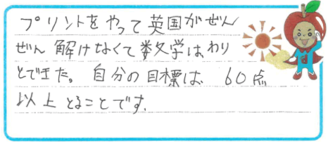 プリントをやって英国がぜん
ぜん解けなくて数学はわり
とできた。自分の目標は60点
以上とることです。